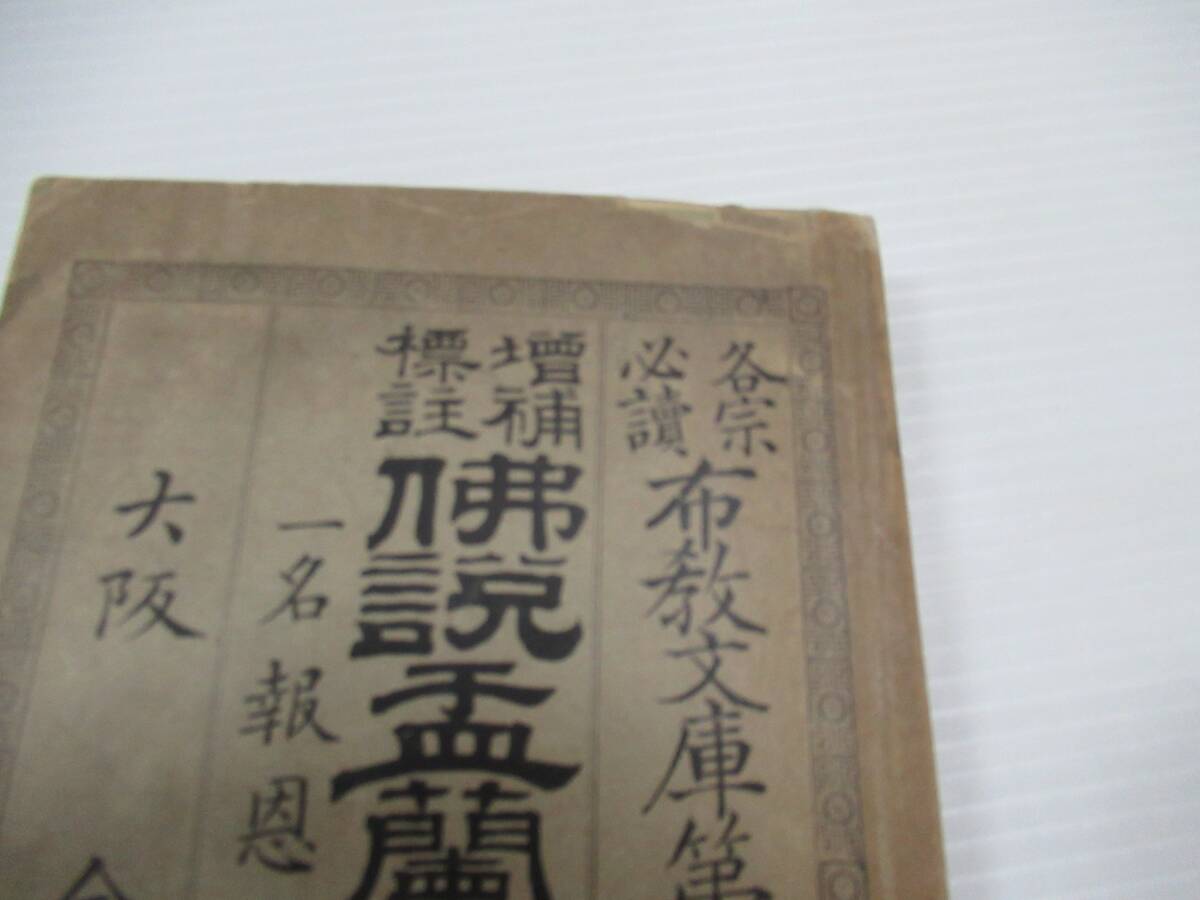 各宗
必讀
布教文庫第
增補
標註
佛說盂蘭
一名報恩
大阪